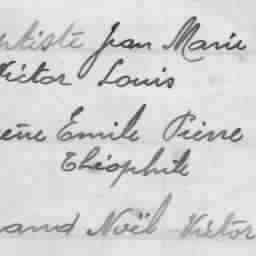 ptiste Jean Marie
Victor Louis
ène Emile Pierre
Théophile
and Noël Victor